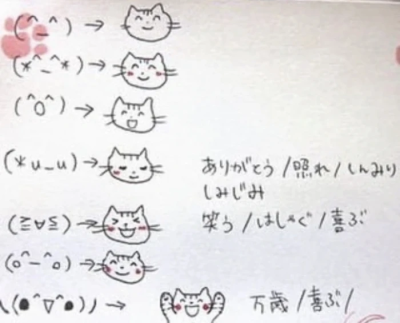 (^_^) →
(*^_^*) →
(^o^) →
(*u_u) → ありがとう/照れ/しんみり
しみじみ
(≧∀≦) → 笑う/はしゃぐ/喜ぶ
(o^-^o) →
\(●^▽^●)ノ → 万歳/喜ぶ/